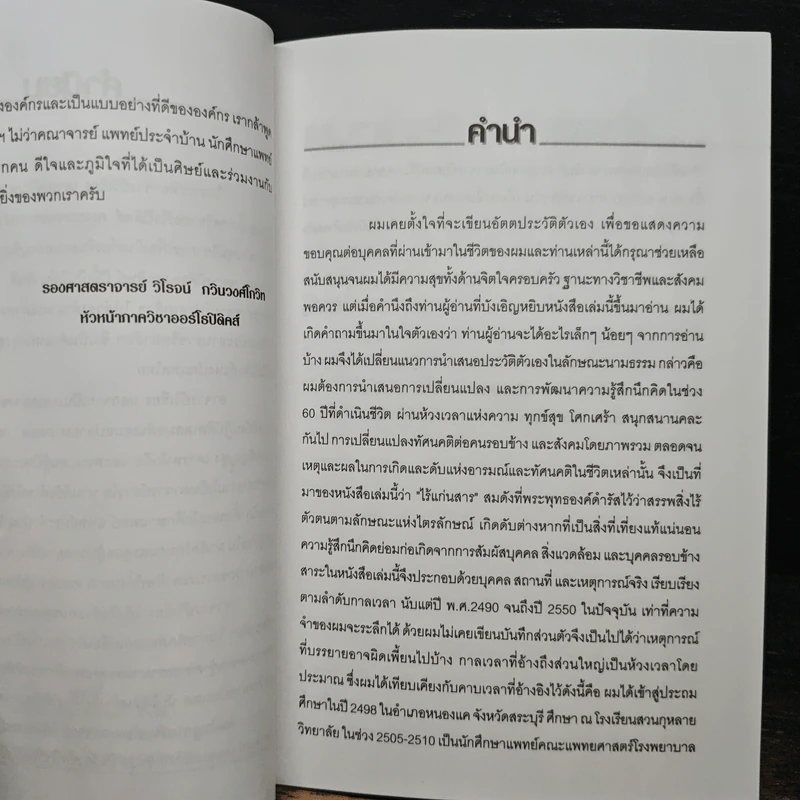 องค์กรและเป็นแบบอย่างที่ดีขององค์กร เรากล้าพูด
ฯ ไม่ว่าคณาจารย์ แพทย์ประจำบ้าน นักศึกษาแพทย์
กคน ดีใจและภูมิใจที่ได้เป็นศิษย์และร่วมงานกับ
ยิ่งของพวกเราครับ
รองศาสตราจารย์ วิโรจน์ กวินวงศ์โกวิท
หัวหน้าภาควิชาออร์โธปิดิคส์
คำนำ
ผมเคยตั้งใจที่จะเขียนอัตตประวัติตัวเอง เพื่อขอแสดงความ
ขอบคุณต่อบุคคลที่ผ่านเข้ามาในชีวิตของผมและท่านเหล่านี้ได้กรุณาช่วยเหลือ
สนับสนุนจนผมได้มีความสุขทั้งด้านจิตใจครอบครัว ฐานะทางวิชาชีพและสังคม
พอควร แต่เมื่อคำนึงถึงท่านผู้อ่านที่บังเอิญหยิบหนังสือเล่มนี้ขึ้นมาอ่าน ผมได้
เกิดคำถามขึ้นมาในใจตัวเองว่า ท่านผู้อ่านจะได้อะไรเล็กๆ น้อยๆ จากการอ่าน
บ้าง ผมจึงได้เปลี่ยนแนวการนำเสนอประวัติตัวเองในลักษณะนามธรรม กล่าวคือ
ผมต้องการนำเสนอการเปลี่ยนแปลง และการพัฒนาความรู้สึกนึกคิดในช่วง
60 ปีที่ดำเนินชีวิต ผ่านห้วงเวลาแห่งความ ทุกข์สุข โศกเศร้า สนุกสนานคละ
กันไป การเปลี่ยนแปลงทัศนคติต่อคนรอบข้าง และสังคมโดยภาพรวม ตลอดจน
เหตุและผลในการเกิดและดับแห่งอารมณ์และทัศนคติในชีวิตเหล่านั้น จึงเป็นที่
มาของหนังสือเล่มนี้ว่า "ไร้แก่นสาร" สมดังที่พระพุทธองค์ดำรัสไว้ว่าสรรพสิ่งไร้
ตัวตนตามลักษณะแห่งไตรลักษณ์ เกิดดับต่างหากที่เป็นสิ่งที่เที่ยงแท้แน่นอน
ความรู้สึกนึกคิดย่อมก่อเกิดจากการสัมผัสบุคคล สิ่งแวดล้อม และบุคคลรอบข้าง
สาระในหนังสือเล่มนี้จึงประกอบด้วยบุคคล สถานที่ และเหตุการณ์จริง เรียบเรียง
ตามลำดับกาลเวลา นับแต่ปี พ.ศ.2490 จนถึงปี 2550 ในปัจจุบัน เท่าที่ความ
จำของผมจะระลึกได้ ด้วยผมไม่เคยเขียนบันทึกส่วนตัวจึงเป็นไปได้ว่าเหตุการณ์
ที่บรรยายอาจผิดเพี้ยนไปบ้าง กาลเวลาที่อ้างถึงส่วนใหญ่เป็นห้วงเวลาโดย
ประมาณ ซึ่งผมได้เทียบเคียงกับคาบเวลาที่อ้างอิงไว้ดังนี้คือ ผมได้เข้าสู่ประถม
ศึกษาในปี 2498 ในอำเภอหนองแค จังหวัดสระบุรี ศึกษา ณ โรงเรียนสวนกุหลาบ
วิทยาลัย ในช่วง 2505-2510 เป็นนักศึกษาแพทย์คณะแพทยศาสตร์โรงพยาบาล